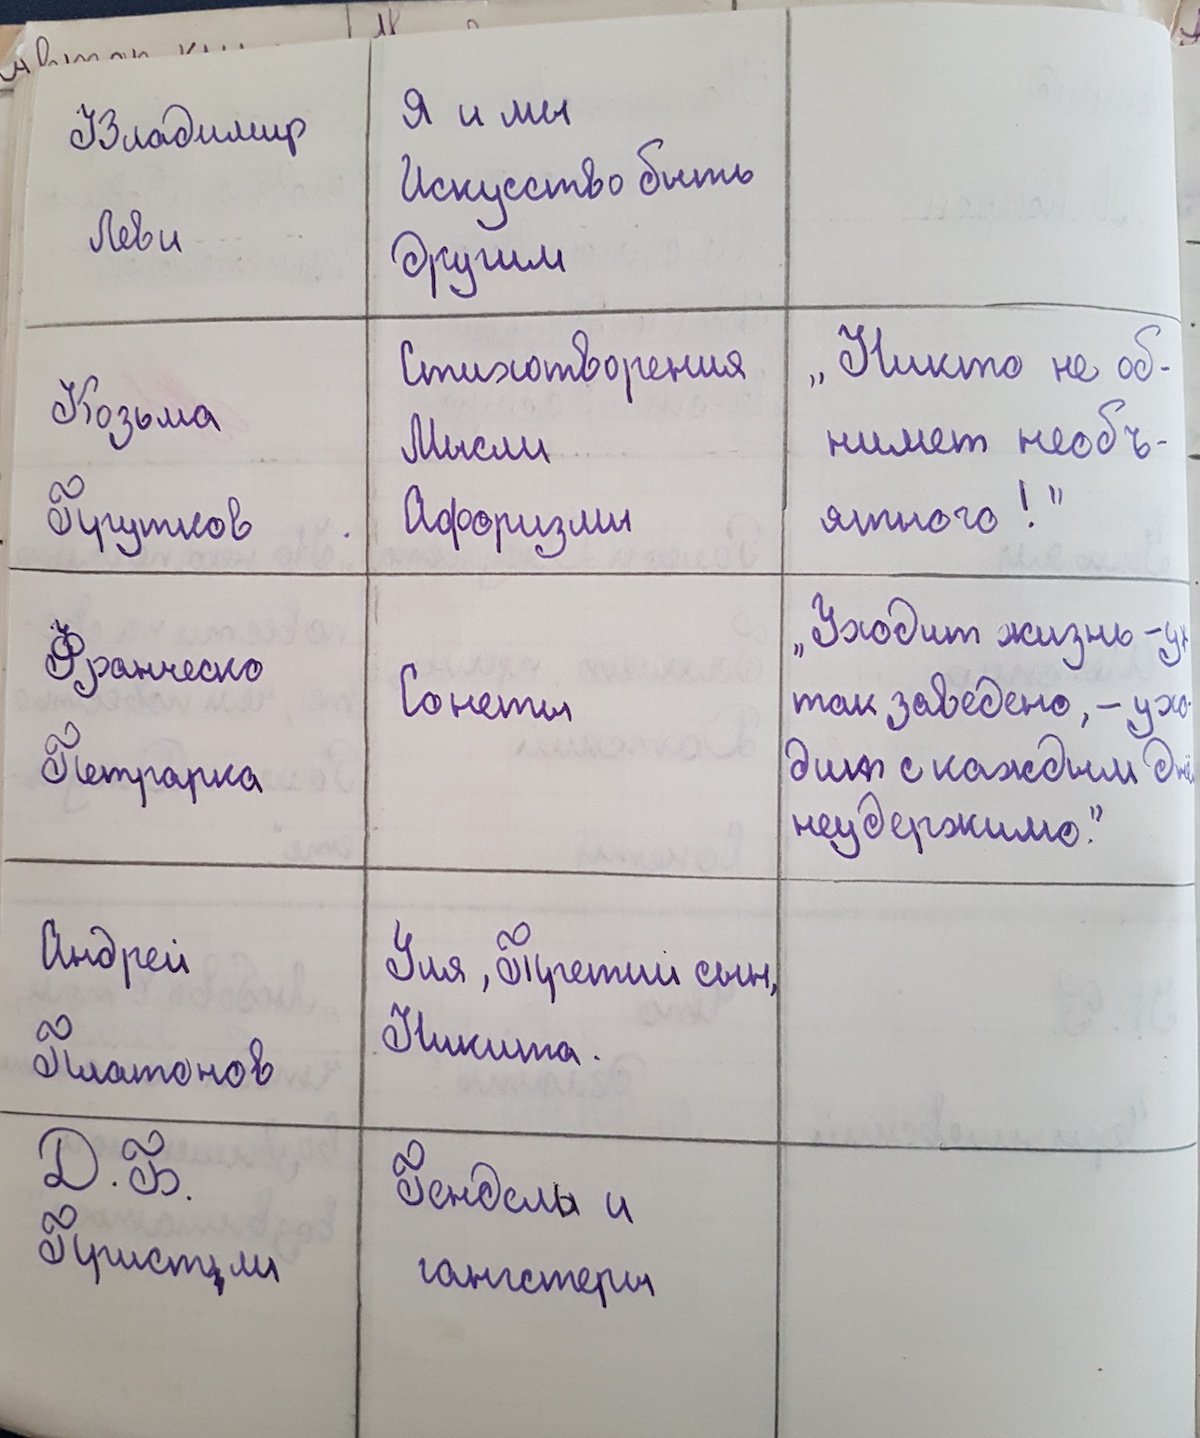 Автор
Владимир
Леви
Я и мы
Искусство быть
другим
Козьма
Прутков
Стихотворения
Мысли
Афоризмы
„Никто не об-
нимет необъ-
ятного!”
Франческо
Петрарка
Сонеты
„Уходит жизнь - ук
так заведено, - ухо-
дит с каждым днём
неудержимо.”
Андрей
Платонов
Уля, Третий сын,
Никита.
Д. Б.
Пристли
Гендель и
гангстеры